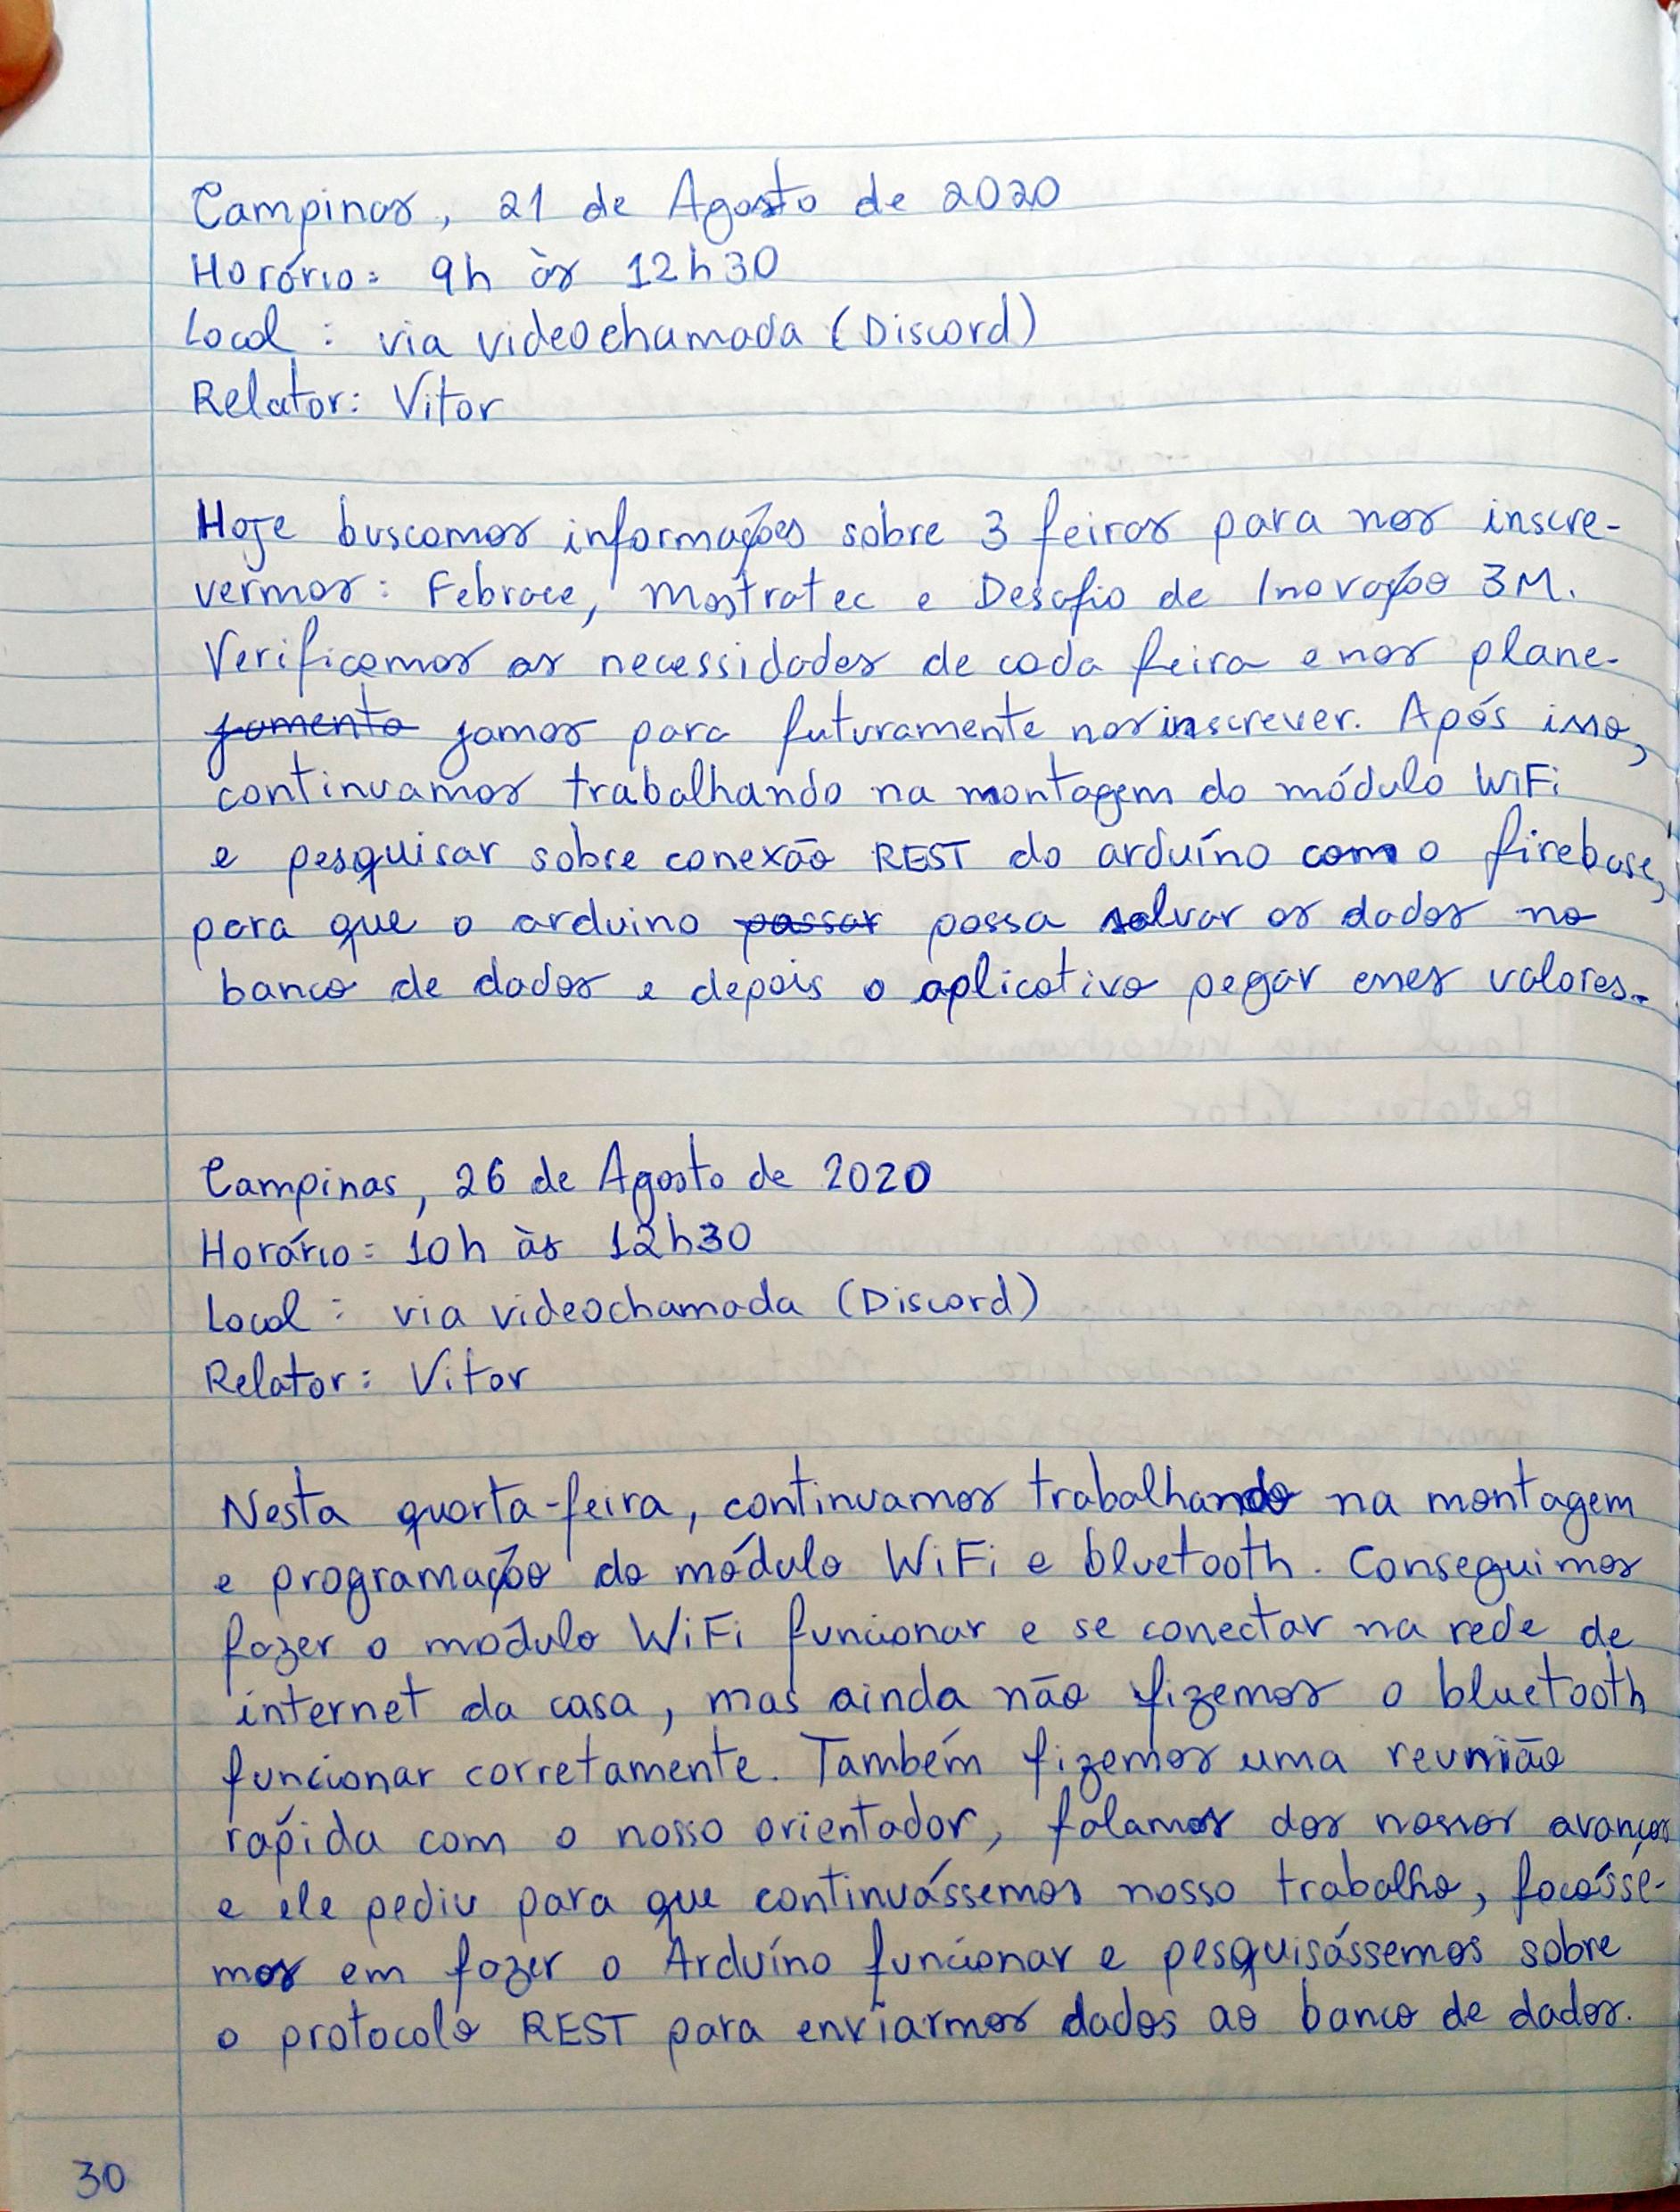 Campinas, 21 de Agosto de 2020
Horário: 9h às 12h30
Local : via videochamada (Discord)
Relator: Vitor
Hoje buscamos informações sobre 3 feiras para nos inscre-
vermos: Febrace, Mostratec e Desafio de Inovação 3M.
Verificamos as necessidades de cada feira e nos plane-
jamento jamos para futuramente nos inscrever. Após isso,
continuamos trabalhando na montagem do módulo WiFi
e pesquisar sobre conexão REST do arduíno com o firebase,
para que o arduino passar possa salvar os dados no
banco de dados e depois o aplicativo pegar esses valores.
Campinas, 26 de Agosto de 2020
Horário: 10h às 12h30
Local : via videochamada (Discord)
Relator: Vitor
Nesta quarta-feira, continuamos trabalhando na montagem
e programação do módulo WiFi e bluetooth. Conseguimos
fazer o módulo WiFi funcionar e se conectar na rede de
internet da casa, mas ainda não fizemos o bluetooth
funcionar corretamente. Também fizemos uma reunião
rápida com o nosso orientador, falamos dos nossos avanços
e ele pediu para que continuássemos nosso trabalho, focásse-
mos em fazer o Arduíno funcionar e pesquisássemos sobre
o protocolo REST para enviarmos dados ao banco de dados.
30